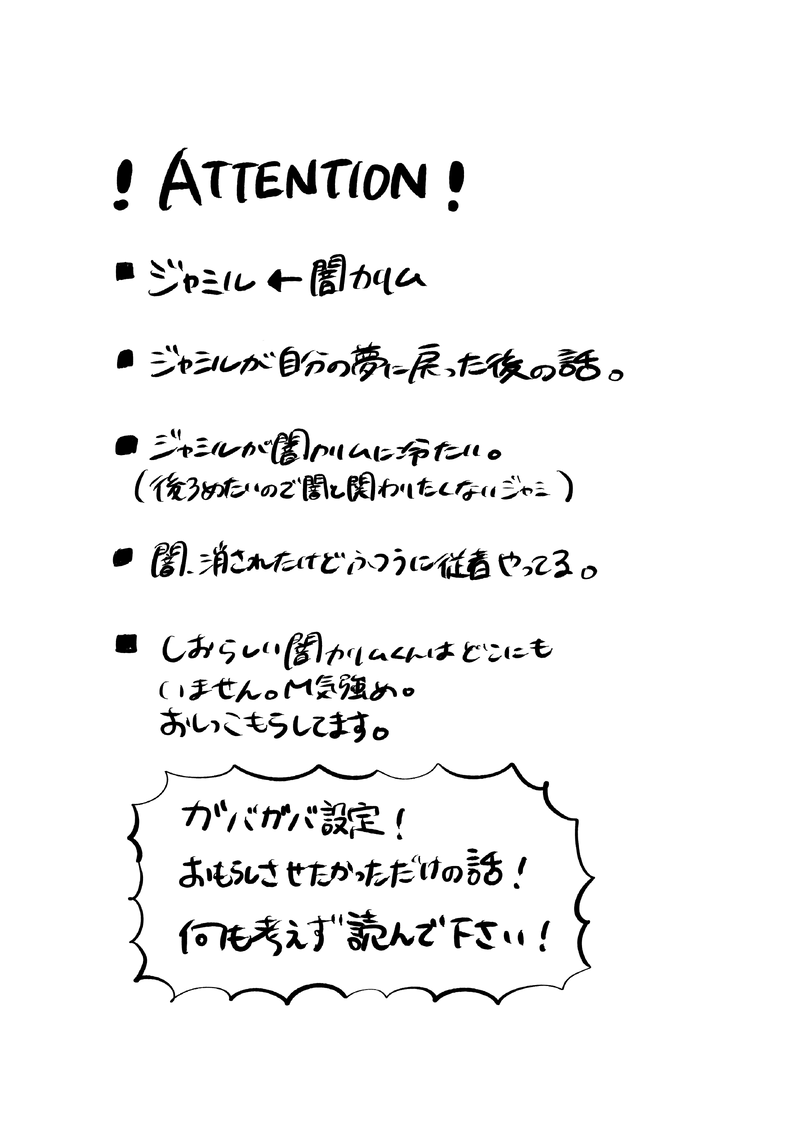 ! ATTENTION !
■ ジャミル←闇カリム
■ ジャミルが自分の夢に戻った後の話。
■ ジャミルが闇カリムに冷たい。
(後ろめたいので闇と関わりたくないジャミ)
■ 闇、消されたけどふつうに従者やってる。
■ しおらしい闇カリムくんはどこにも
いません。M気強め。
おしっこもらしてます。
ガバガバ設定!
おもらしさせたかっただけの話!
何も考えず読んで下さい!